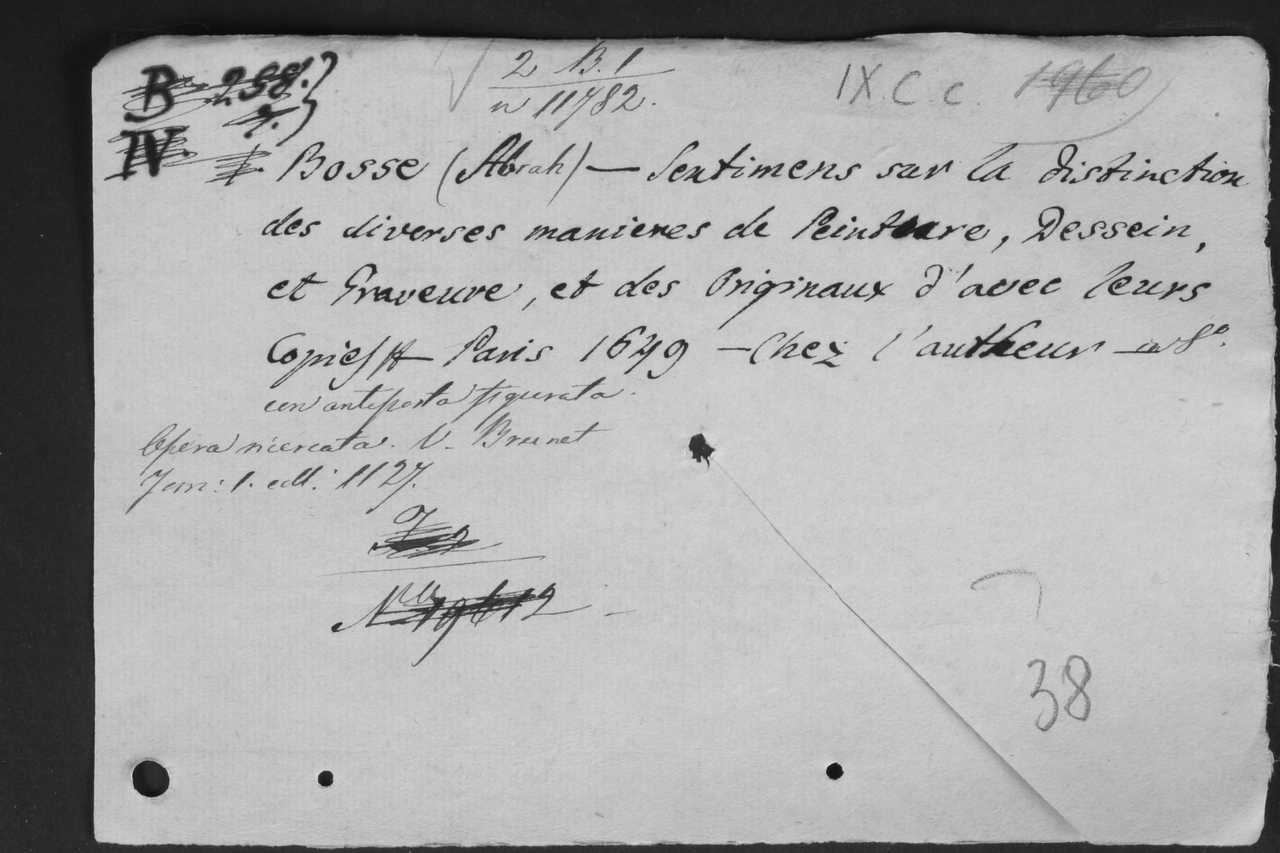 B 258.
2 B. 1
IX C c. 1960
IV. 7.
n 11782.
I. Bosse (Abrah) — Sentimens sur la distinction
des diverses manieres de Peinture, Dessein,
et Graveure, et des Originaux d'avec leurs
Copies — Paris 1649 — Chez l'autheur — in 8°.
con antiporta figurata.
Opera ricercata. V. Brunet
Tom: 1. coll: 1127.
N.ro 19612
38